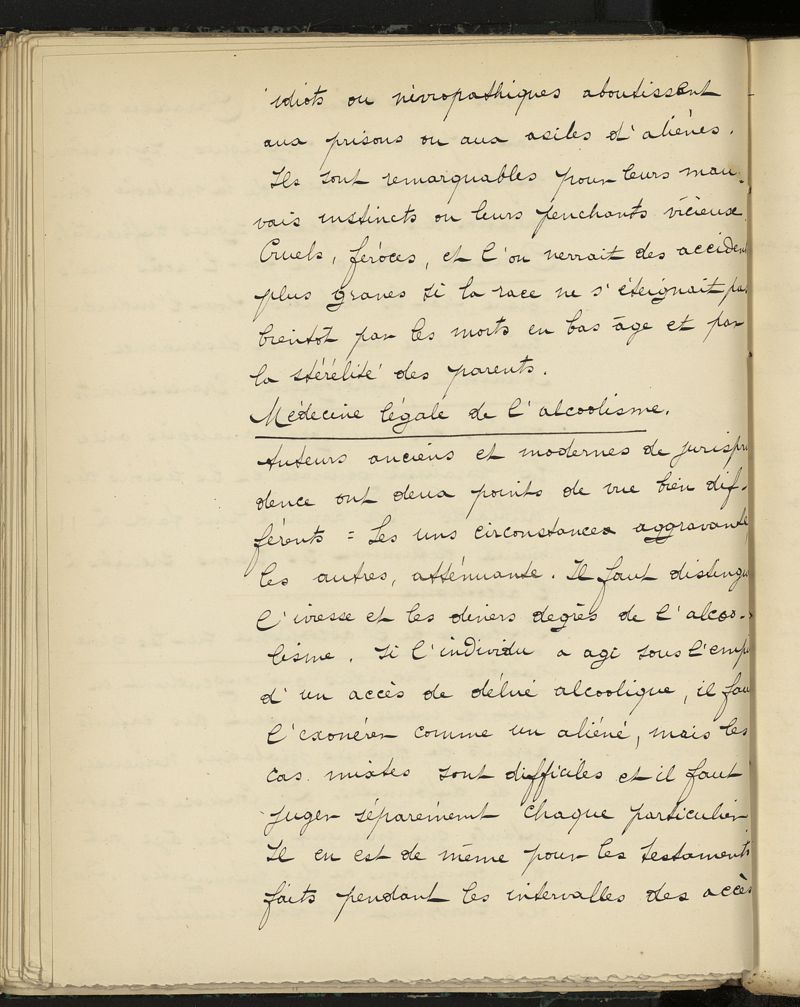 idiots ou névropathiques aboutissent
aux prisons ou aux asiles d'aliénés.
Ils sont remarquables pour leurs mau-
vais instincts ou leurs penchants vicieux.
Cruels, féroces, et l'on verrait des acciden
plus graves si la race ne s'éteignait pas
bientôt par les morts en bas âge et par
la stérélité des parents.
Médecine légale de l'alcoolisme.
Auteurs anciens et modernes de jurispru
dence ont deux points de vue bien dif-
férents = Les uns circonstances aggravante
les autres, atténuante. Il faut distingu
l'ivresse et les divers degrés de l'alcoo-
lisme. Si l'individu a agi sous l'empi
d'un accès de délire alcoolique, il fau
l'exonérer comme un aliéné, mais les
cas mixtes sont difficiles et il faut
juger séparément chaque particulier
Il en est de même pour les testaments
faits pendant les intervalles des accès